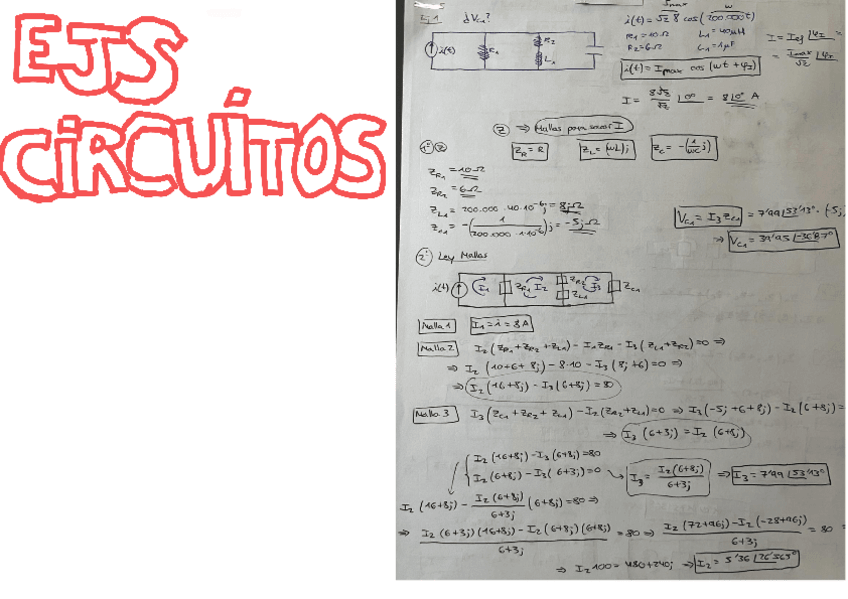 EJS
CiRCUiTOS
Ej 1 ¿Vc1?
i(t) = √2 8 cos(200.000t)
R1 = 10Ω L1 = 40μH
R2 = 6Ω C1 = 1μF
i(t) = Imax cos(wt + φI)
I = Ief |φI =
= Imax/√2 |φI
I = 8√2/√2 |0° = 8|0° A
i(t) R1 R2 L1
Z ⇒ Mallas para sacar I
1º Z
ZR = R ZL = (wL)j Zc = -(1/wc j)
ZR1 = 10Ω
ZR2 = 6Ω
ZL1 = 200.000 · 40·10⁻⁶j = 8jΩ
Zc1 = -(1/200.000·1·10⁻⁶)j = -5jΩ
Vc1 = I3 Zc1 = 7'99|53'13° · (-5j
⇒ Vc1 = 39'95|-36'87°
2º Ley Mallas
i(t) I1 ZR1 I2 ZR2 ZL1 I3 Zc1
Malla 1 I1 = i = 8A
Malla 2 I2(ZR1+ZR2+ZL1) - I1ZR1 - I3(ZL1+ZR2) = 0 ⇒
⇒ I2(10+6+8j) - 8·10 - I3(8j+6) = 0 ⇒
⇒ I2(16+8j) - I3(6+8j) = 80
Malla 3 I3(Zc1+ZR2+ZL1) - I2(ZR2+ZL1) = 0 ⇒ I3(-5j+6+8j) - I2(6+8j) =
⇒ I3(6+3j) = I2(6+8j)
I2(16+8j) - I3(6+8j) = 80
I2(6+8j) - I3(6+3j) = 0 I3 = I2(6+8j)/6+3j ⇒ I3 = 7'99|53'13°
I2(16+8j) - I2(6+8j)/6+3j (6+8j) = 80 ⇒
⇒ I2(6+3j)(16+8j) - I2(6+8j)(6+8j)/6+3j = 80 ⇒ I2(72+96j) - I2(-28+96j)/6+3j = 80
⇒ I2 100 = 480+240j ⇒ I2 = 5'36|26'565°